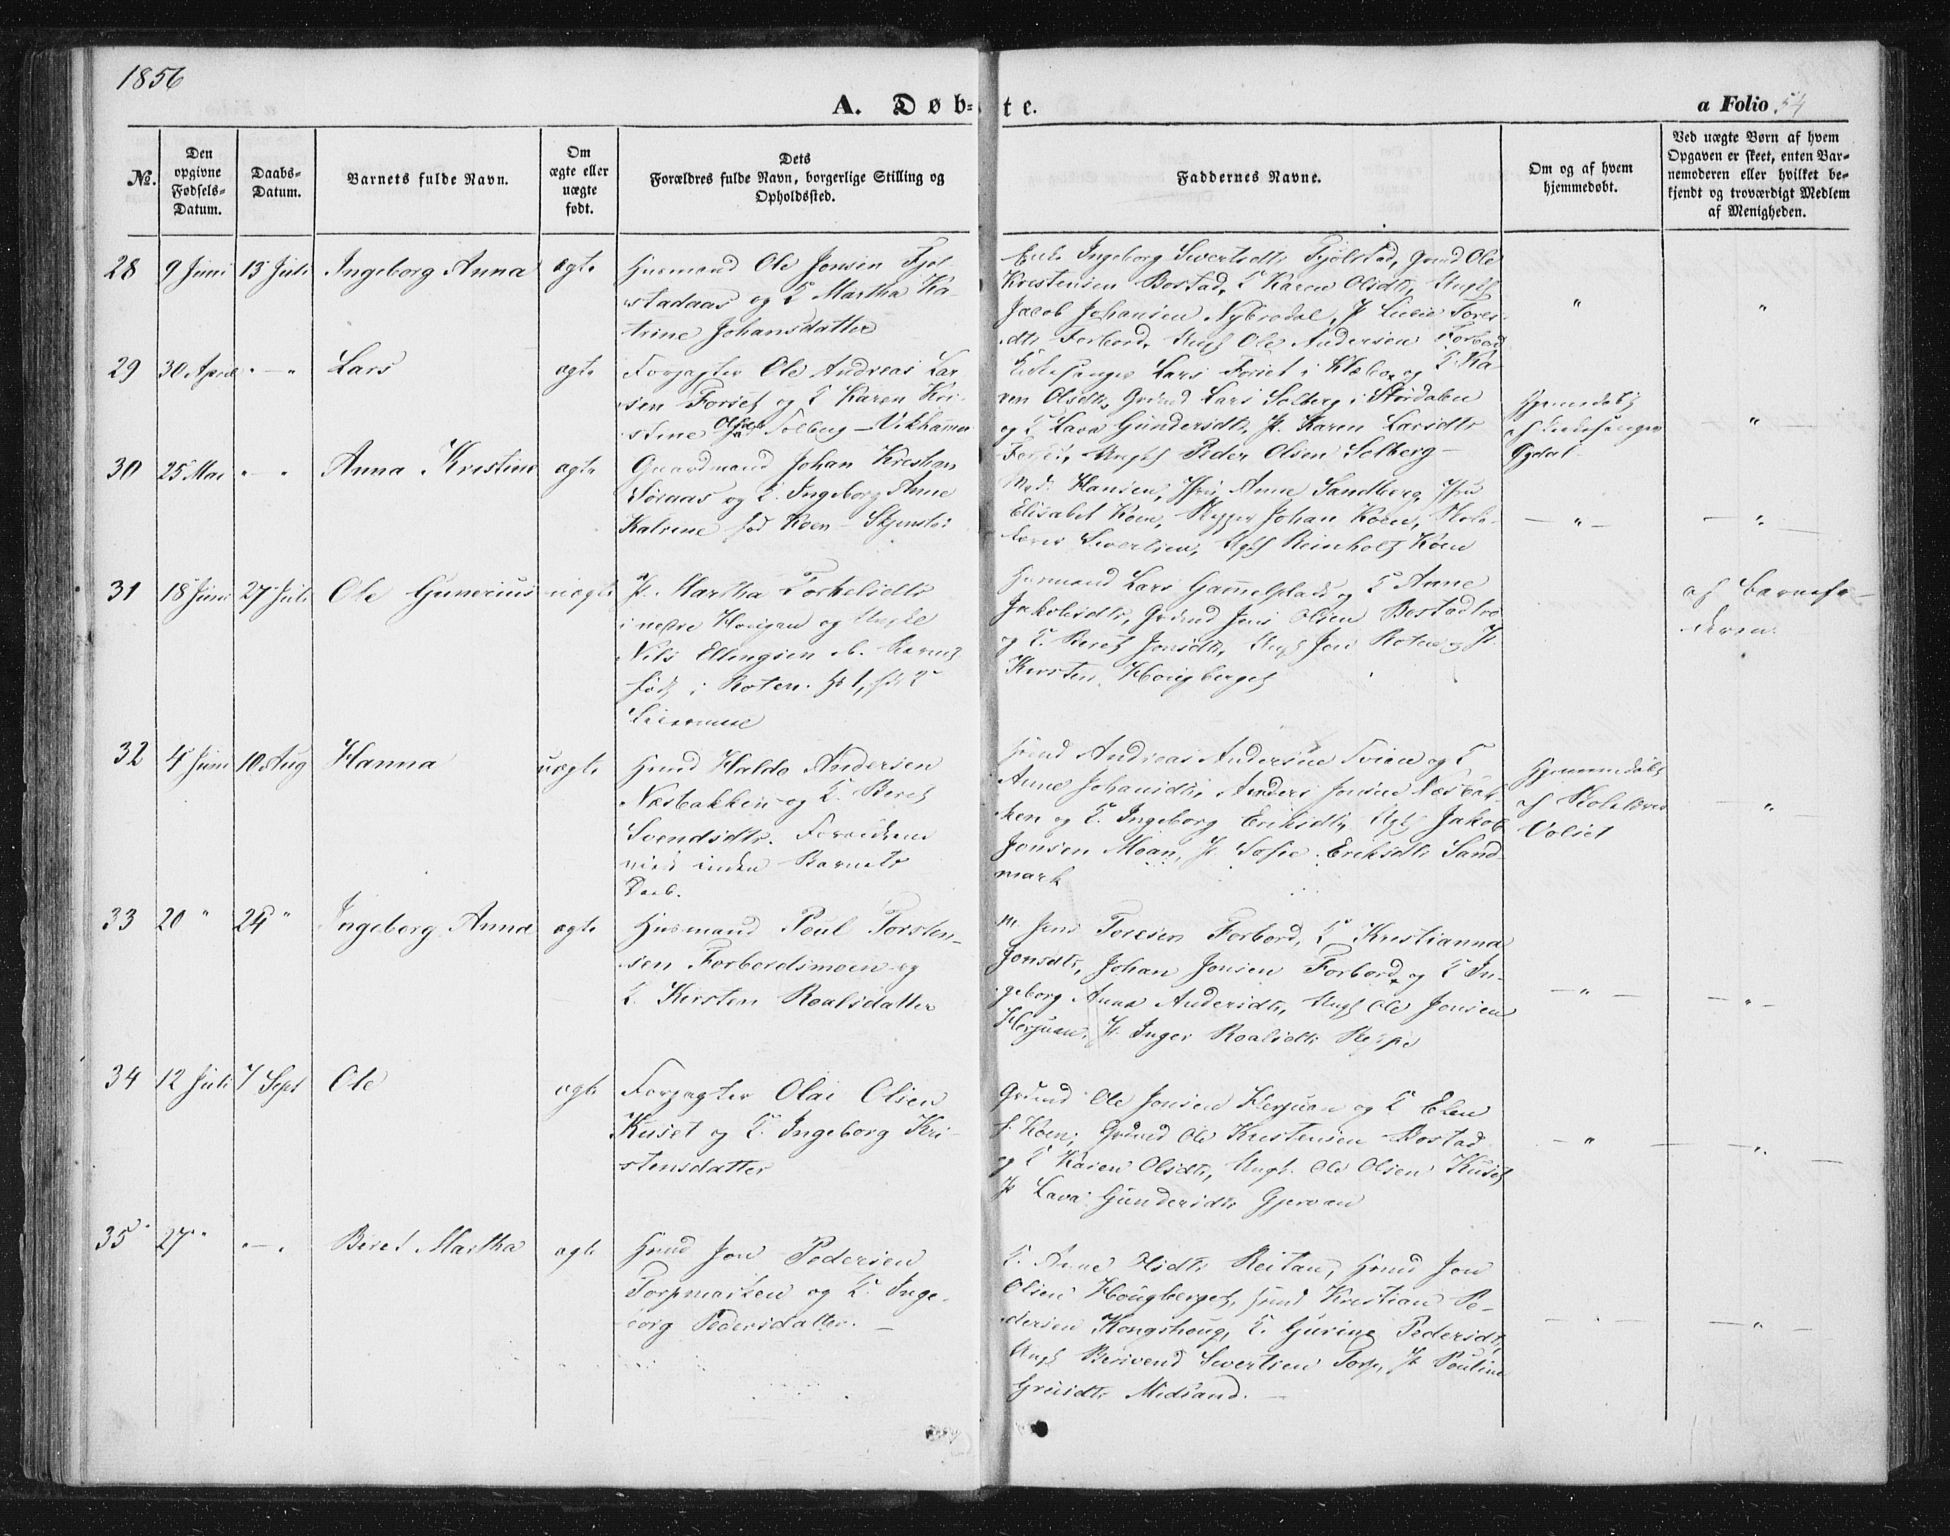 1856
A. Døb-te.
a Folio 54
№.
Den opgivne Fødsels-Datum.
Daabs-Datum.
Barnets fulde Navn.
Om ægte eller uægte født.
Dets Forældres fulde Navn, borgerlige Stilling og Opholdssted.
Faddernes Navne.
Om og af hvem hjemmedøbt.
Ved uægte Børn af hvem Opgaven er skeet, enten Barnemoderen eller hvilket bekjendt og troværdigt Medlem af Menigheden.
28 9 Juni 13 Juli Ingeborg Anna ægte
Husmand Ole Jonsen Fjøl-
stadaas og K Martha Ka-
trine Johansdatter
Enke Ingeborg Sivertsdtr Fjølstad, Grmd Ole
Kristensen Bostad, K Karen Olsdtr, Ungk
Jacob Johansen Nybrodal, P.
dtr Forbord, Ungk Ole Andersen Forbord
" "
29 30 April " — " Lars ægte
Forpagter Ole Andreas Lar-
sen Forset og K Karen Kri-
stine Olsdtr Solberg - Vikhammer
Kirkesanger Lars Forset i Klæbo og K Ka-
ren Olsdtr, Grdmd Lars Solberg i Størdalen
og K Lava Gundersdtr, P. Karen Larsdtr
Forset, Ungk Peder Olsen Solberg -
Hjemmedøbt
af Kirkesanger
"
30 25 Mai " — " Anna Kristine ægte
Gaardmand Johan Kristian
og K. Ingeborg Anne
Katrine fød Koen -
Mad. Hansen, Jfru Anne Sandberg, Jfru
Elisabet Koen, Johan Koen, Skole-
lærer Sivertsen, Ungk Reinholt Koen
— " — — " —
31 18 Juni 27 Juli Ole Gunerius uægte
P. Martha Torkelsdtr
i nedre Hougan og Ungkl
Nils Ellingsen
født i Roten. H 1, hds 2
Leiermaal
Husmand Lars Gammelplads og K Anne
Jakobsdtr, Grdmd Jens Olsen Bostadtrø
og K. Beret Jonsdtr, Ungk Jon Roten og P.
Kirsten Hougberget
af Barnefa-
deren.
32 4 Juni 10 Aug Hanna uægte
Hmd Haldo Andersen
Næsbakken og K. Beret
Svendsdtr. Forældrene
viet inden Barnets
Daab.
Hmd Andreas Andersen Tvien og K
Anne Johansdtr, Anders Jonsen Næsbak-
ken og K. Ingeborg Eriksdtr, Ungk Jakob
Jonsen Moan, P. Sofie Eriksdtr Sand-
mark
Hjemmedøbt
af Skolelærer
Volset
— "
33 20 " 24 " Ingeborg Anna ægte
Husmand Poul Torsten-
sen Forbordsmoen og
K. Kirsten Roalsdatter
Jens Toresen Forbord, K Kristianna
Jonsdtr, Johan Jonsen Forbord og K In-
geborg Anna Andersdtr, Ungk Ole Jonsen
Herjuan, P. Inger Roalsdtr Reppe
— " — — " —
34 12 Juli 7 Sept Ole ægte
Forpagter Olai Olsen
Kuset og K. Ingeborg Kri-
stensdatter
Grdmd Ole Jonsen Herjuan og K Elen
f. Koen, Grdmd Ole Kristensen Bostad
og K Karen Olsdtr, Ungk. Ole Olsen Kuset
P Lava Gundersdtr Gjervan
— " — — " —
35 27 " " — " Beret Martha ægte
Hmd Jon Pedersen
Torpmarken og K. Inge-
borg Pedersdatter. —
K. Anne Olsdtr Reitan, Hmd Jon
Olsen Hougberget, Hmd Kristian Pe-
dersen Kongshoug, K. Gurine Pedersdtr,
Ungk Berivend Sivertsen Torp, P. Pauline
Midsand. —
— " —